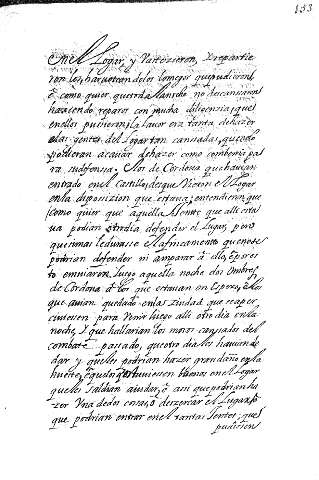 153
en el Logar, y Vastecieron, y repartie
ron los, harueran de los lo mejor que pudieron
é como quier que toda la noche no descansaron
haziendo reparos con mucha diligencia, que
en ellos pusieron, la lauor era tanta de hazer
e las gentes del Logar tan cansadas, que no
podieran acauar de hazer como combenia pa
ra su defensa, e los de Cordoua que hauian
entrado en el Castillo, desque Vieron el Logar
en la disposizion que estaua, entendieron que
como quier que aquella Gente que alli esta
ua podian otro dia defender el Lugar, pero
que si mas le durasse el afincamiento que no se
podrian defender ni amparar á ello, é por es
to embiaron luego aquella noche dos Ombres
de Cordoua á los que estauan en Eperes, é los
que auian quedado en la Ziudad que se aper
ciuiessen para Venir luego alli otro dia en la
noche, y que hallarian los moros cansados del
combate passado, que otro dia les hauian de
dar y que ellos podrian hazer gran daño en la
hueste, é que los que estuuiessen buenos en el Logar
que les saldrian aiudar, é assi que podrian ha
zer Vna de dos cosas, ó dezercar el Lugar, ó
que podrian entrar en el tantas Gentes, que
pudiesen